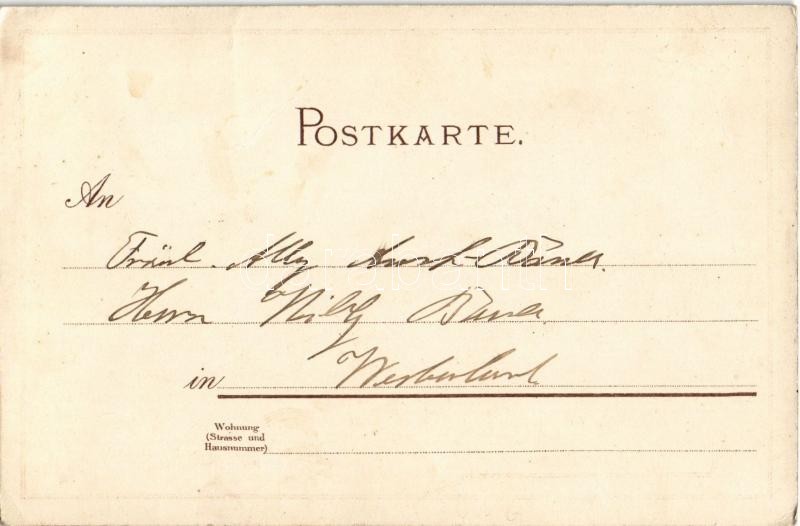 POSTKARTE.
An
Fräul. Ally
Herrn Willy
in Westerland
Wohnung
(Strasse und
Hausnummer)